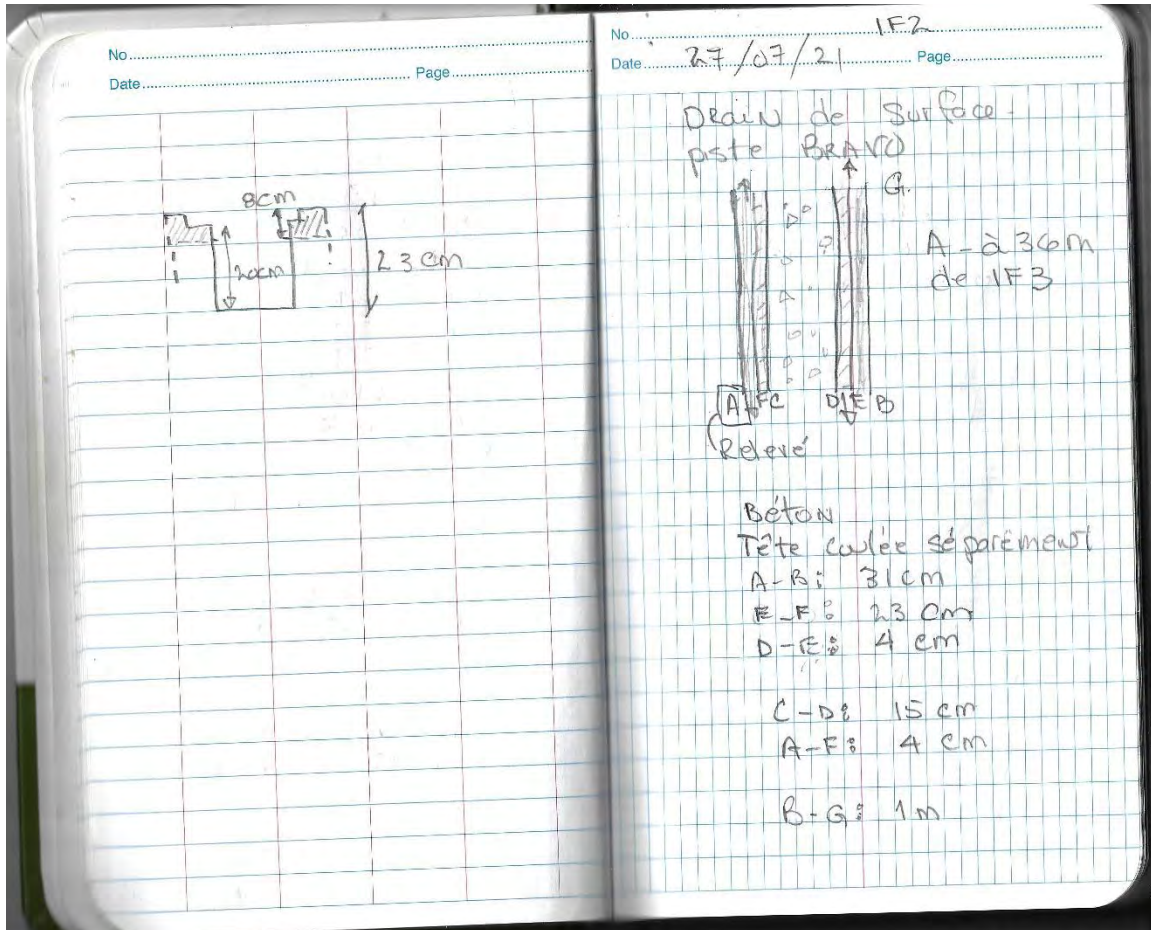 No
Date Page
8cm
20cm
23cm
No 1F2
Date 27/07/21 Page
Drain de Surface
piste BRAVO
G.
A - à 36m
de 1F3
A F C D E B
Relevé
Béton
Tête coulée séparément
A-B: 31cm
E-F: 23 cm
D-E: 4 cm
C-D: 15 cm
A-F: 4 cm
B-G: 1m